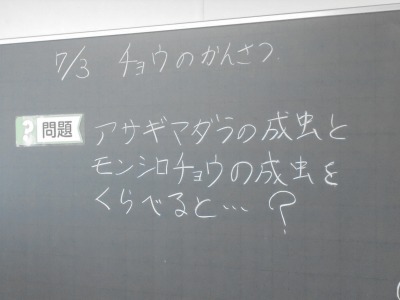 7/3 チョウのかんさつ
? 問題 アサギマダラの成虫と
モンシロチョウの成虫を
くらべると…?